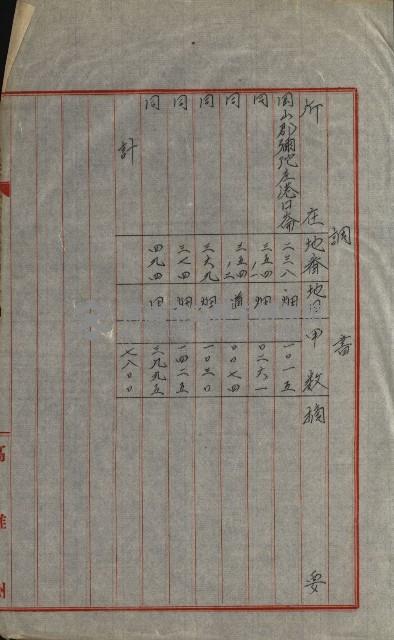 調書
所在 地番 地目 甲数 摘要
岡山郡彌陀庄港口崙 二三八 畑 一〇一五
同 三五四ノ一 畑 〇二六一
同 三五四ノ二 道 〇〇七四
同 三六九 畑 一〇三〇
同 三七四 畑 一四二五
同 四九四 田 三九九五
計 七八〇〇
高雄州